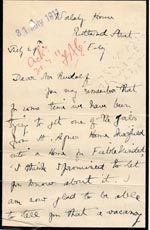 Wolsley House
Rutland Street
July
Dear Mr Rudolf
You may remember that
for some time we have been
trying to get one of the girls
from St. Agnes Home
into a Home for Feebleminded
I think I promised to let
you know about it. I
am now glad to be able
to tell you that a vacancy